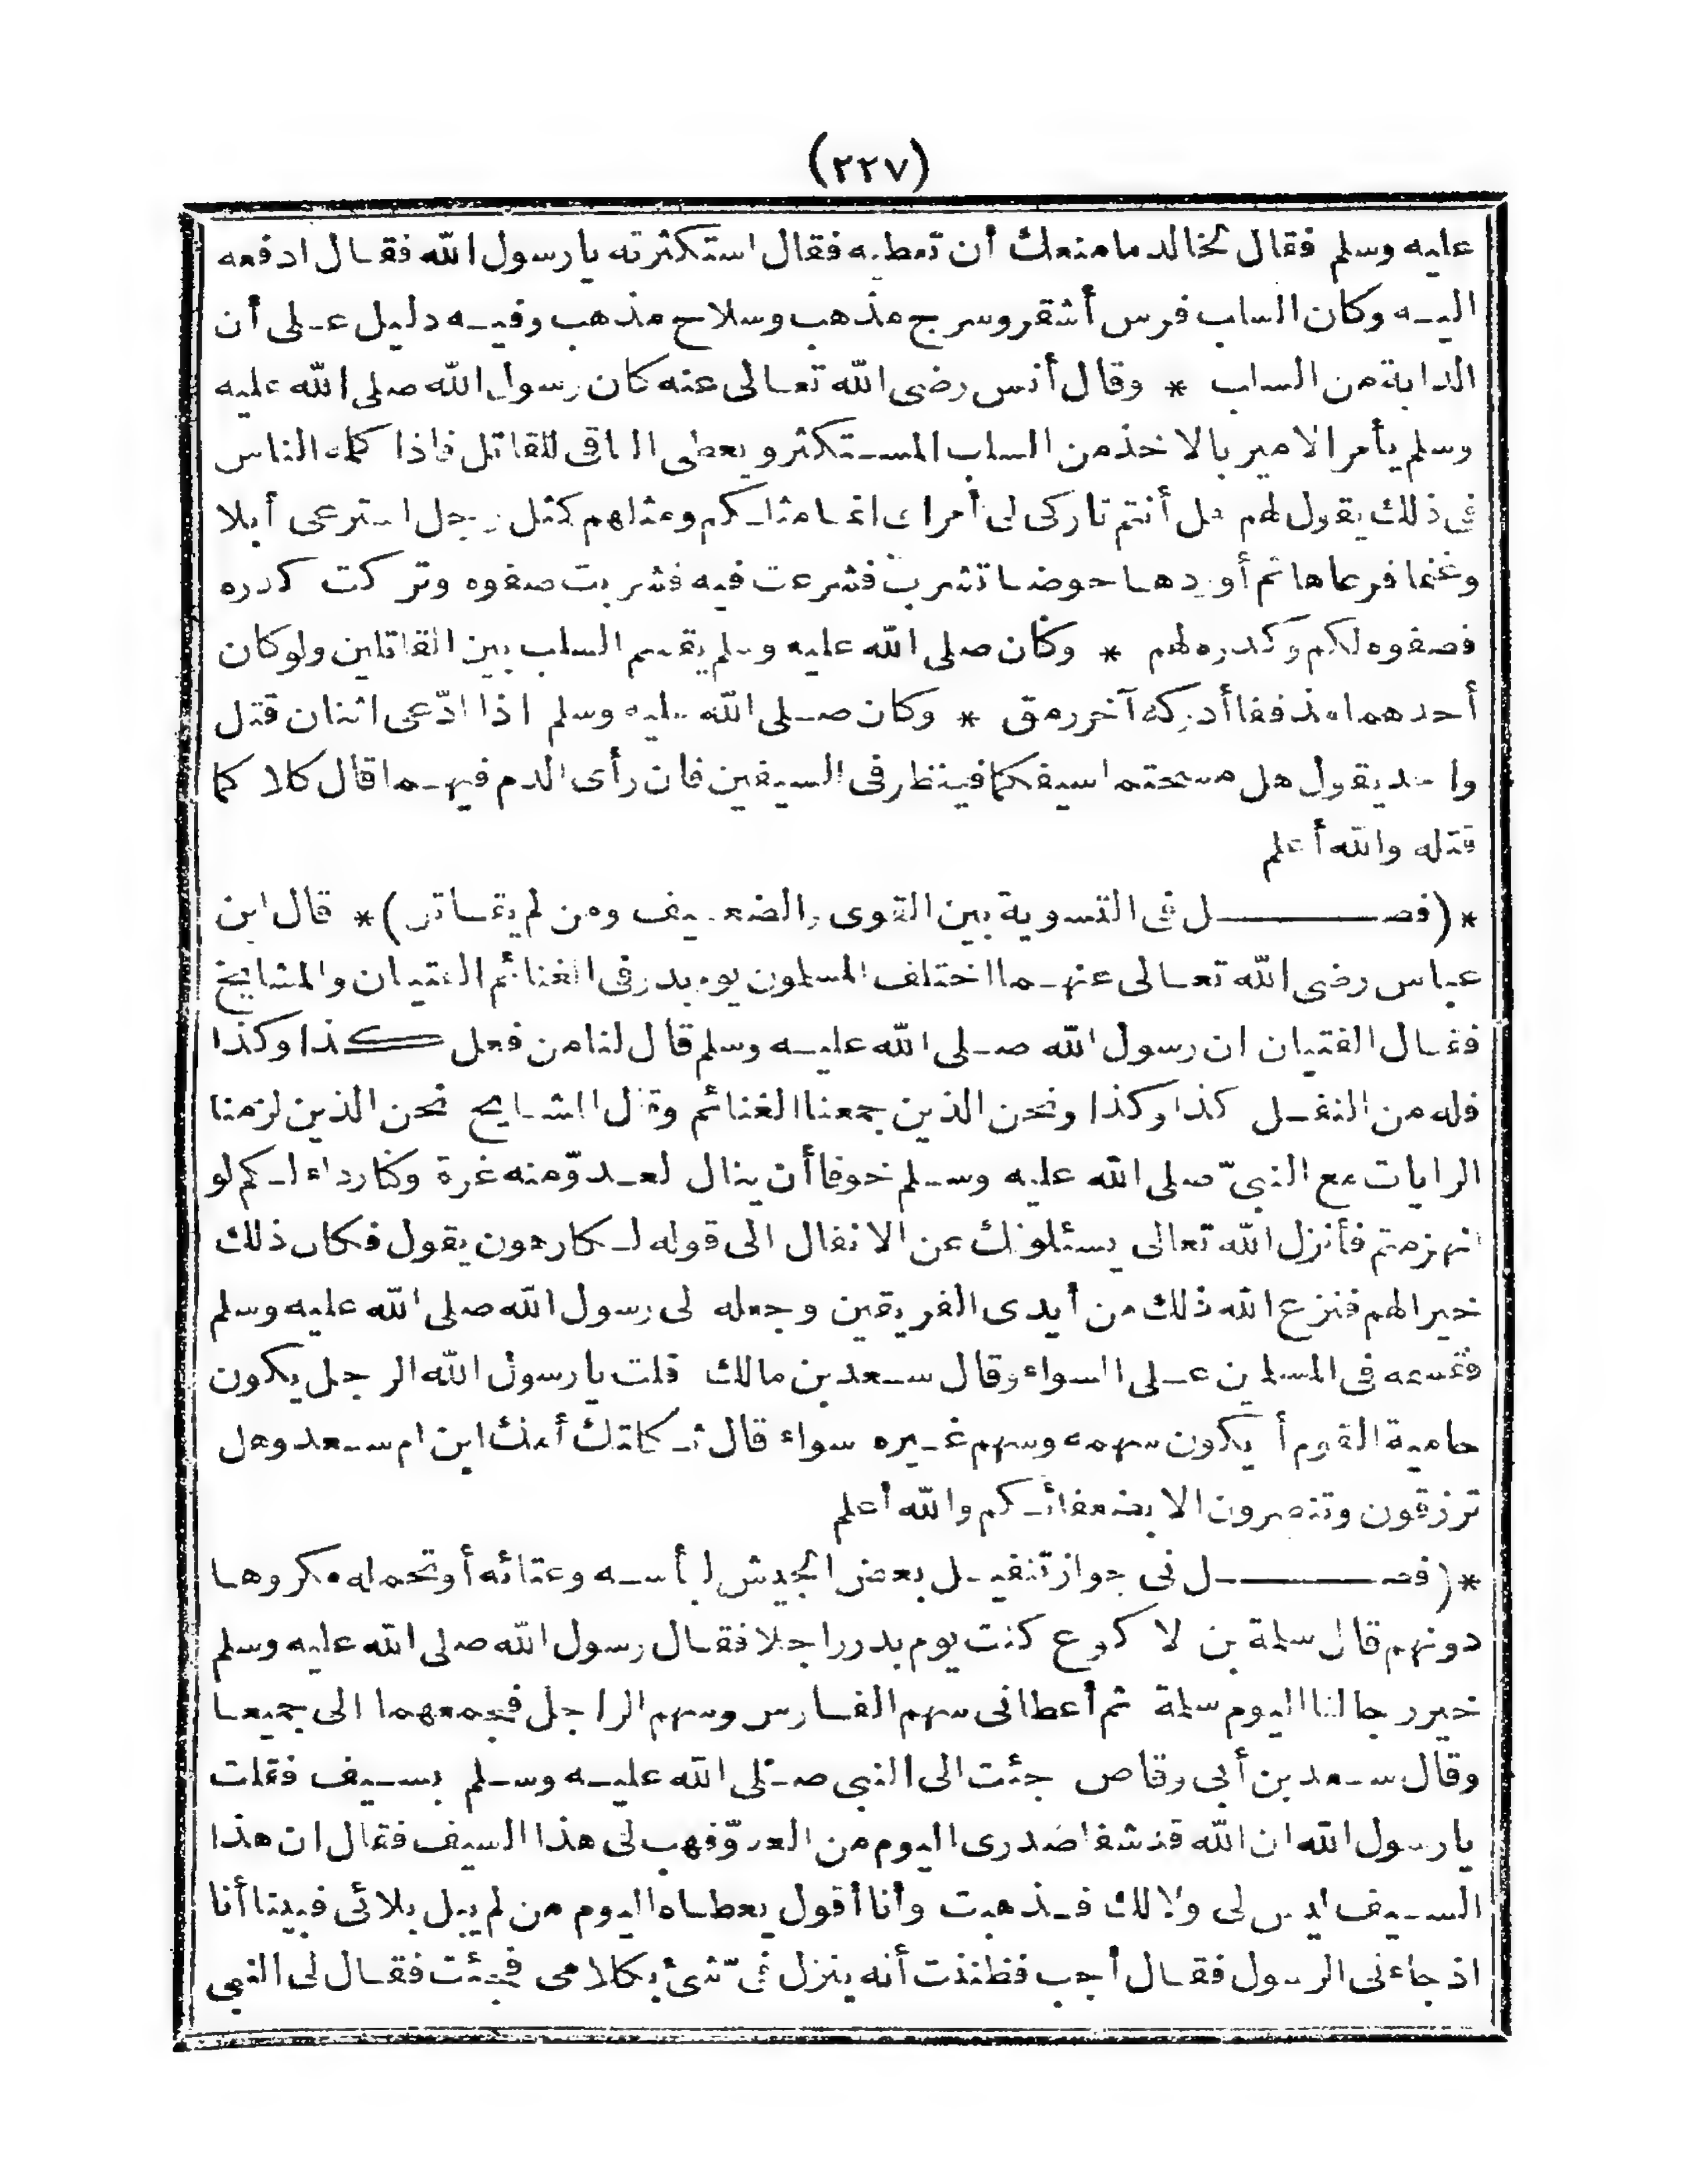 (٢٢٧)
عليه وسلم فقال لخالد ما منعك أن تعطيه فقال استكثرته يا رسول الله فقال ادفعه
اليه وكان السلب فرس أشقر وسرج مذهب وسلاح مذهب وفيه دليل على أن
الدابة من السلب * وقال أنس رضى الله تعالى عنه كان رسول الله صلى الله عليه
وسلم يأمر الامير بالاخذ من السلب المستكثر ويعطى الباقى للقاتل فاذا كلمه الناس
فى ذلك يقول لهم هل أنتم تاركى لى أمراى انما مثلكم ومثلهم كمثل رجل استرعى أبلا
وغنما فرعاها ثم أوردها حوضا تشرب فشرعت فيه فشربت صفوه وتركت كدره
فصفوه لكم وكدره لهم * وكان صلى الله عليه وسلم يقسم السلب بين القاتلين ولو كان
أحدهما مذففا أدركه آخر رمق * وكان صلى الله عليه وسلم اذا ادّعى اثنان قتل
واحد يقول هل مسحتما سيفكما فينظر فى السيفين فان رأى الدم فيهما قال كلا كما
قتله والله أعلم
*(فصل فى التسوية بين القوى والضعيف ومن لم يقاتل)* قال ابن
عباس رضى الله تعالى عنهما اختلف المسلمون يوم بدر فى الغنائم الفتيان والمشايخ
فقال الفتيان ان رسول الله صلى الله عليه وسلم قال لنا من فعل كذا وكذا
فله من النفل كذا وكذا ونحن الذين جمعنا الغنائم وقال المشايخ نحن الذين لزمنا
الرايات مع النبىّ صلى الله عليه وسلم خوفا أن ينال لعدوّ منه غرة وكنا رداء لكم لو
انهزمتم فأنزل الله تعالى يسئلونك عن الانفال الى قوله لكارهون يقول فكان ذلك
خيرا لهم فنزع الله ذلك من أيدى الفريقين وجعله لى رسول الله صلى الله عليه وسلم
فقسمه فى المسلمين على السواء وقال سعد بن مالك قلت يا رسول الله الرجل يكون
حامية القوم أيكون سهمه وسهم غيره سواء قال ثكلتك أمك ابن ام سعد وهل
ترزقون وتنصرون الا بضعفائكم والله أعلم
*(فصل فى جواز تنفيل بعض الجيش لبأسه وعنائه أو تحمله مكروها
دونهم قال سلمة بن لا كوع كنت يوم بدر راجلا فقال رسول الله صلى الله عليه وسلم
خير رجالنا اليوم سلمة ثم أعطانى سهم الفارس وسهم الراجل فجمعهما الى جميعا
وقال سعد بن أبى وقاص جئت الى النبى صلى الله عليه وسلم بسيف فقلت
يا رسول الله ان الله قد شفا صدرى اليوم من العدوّ فهب لى هذا السيف فقال ان هذا
السيف ليس لى ولا لك فذهبت وأنا أقول يعطاه اليوم من لم يبل بلائى فبينا أنا
اذ جاءنى الرسول فقال أجب فظننت أنه ينزل فىّ شئ بكلامى فجئت فقال لى النبى